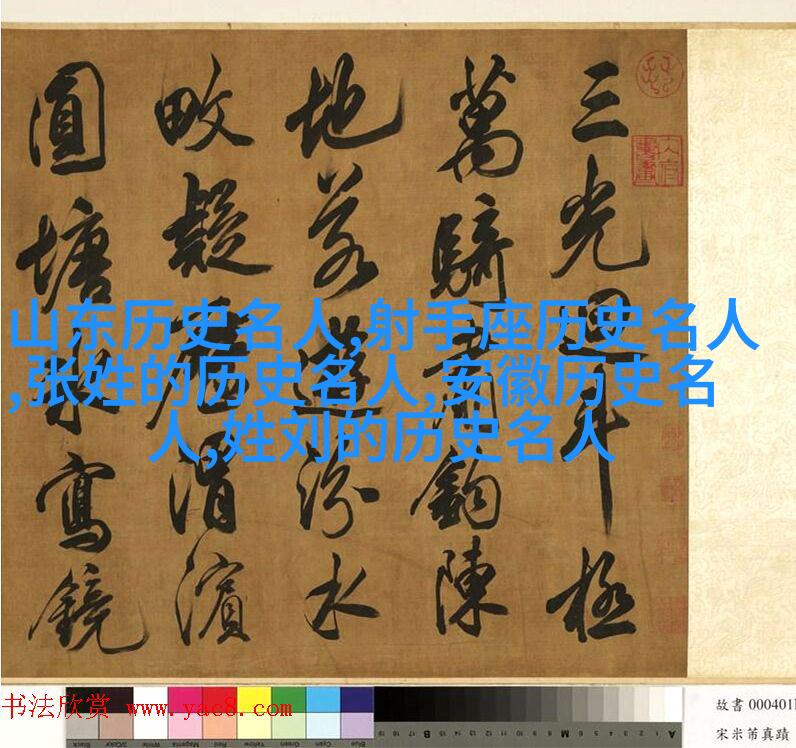 三光迴斗極
萬騎鉤陳
地若遊汾水
畋疑渭濱
圓塘寫鏡
山东历史名人,射手座历史名人
,张姓的历史名人,安徽历史名
人,姓刘的历史名人
书法欣赏 www.yac8.com
故書 000401
宋米芾真蹟